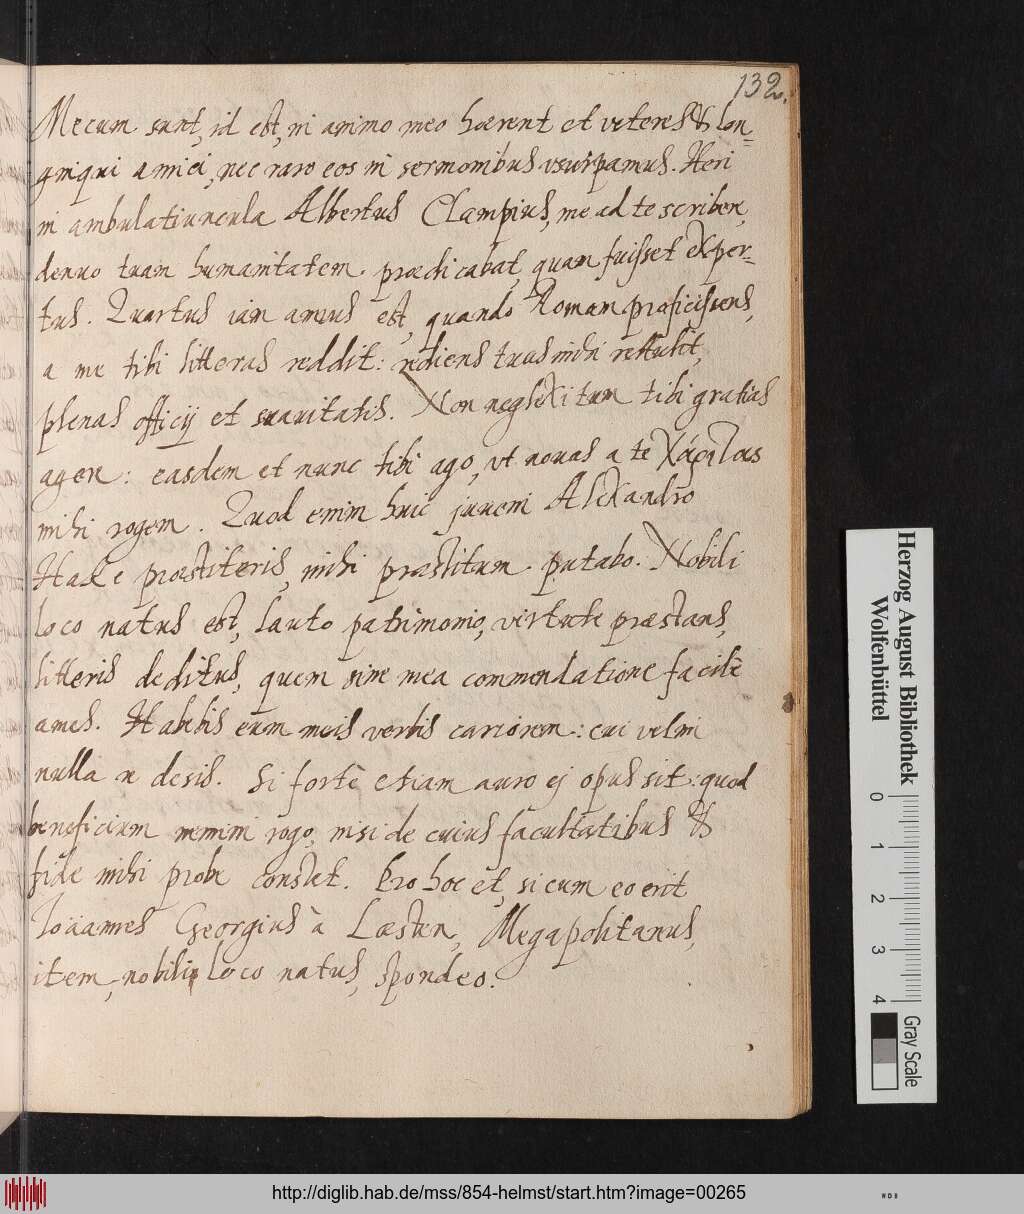 132.
Mecum sunt, id est, in animo meo hærent et veteres & lon=
ginqui amici, nec raro eos in sermonibus usurpamus. Heri
in ambulatiuncula Albertus Clampius, me ad te scriben,
denuo tuam humanitatem prædicabat, quam fuisset exper=
tus. Quartus iam annus est, quando Romam proficiscens,
a me tibi litteras reddit: rediens tuas mihi rettulit,
plenas officij et suavitatis. Non neglexi tum tibi gratias
agere: easdem et nunc tibi ago, ut novas a te χάριτας
mihi rogem. Quod enim huic juveni Alexandro
Hake præstiteris, mihi præstitum putabo. Nobili
loco natus est, lauto patrimonio, virtute præstans,
litteris deditus, quem sine mea commendatione facilè
ames. Habebis eum meis verbis cariorem: cui velim
nulla in re desis. Si fortè etiam auro ej opus sit: quod
beneficium nemini rogo, nisi de cuius facultatibus &
fide mihi probe constat. Pro hoc et, si cum eo erit
Joannes Georgius à Læsten, Megapolitanus,
item, nobili loco natus, spondeo.
Herzog August Bibliothek
Wolfenbüttel
0 1 2 3 4
Gray Scale
http://diglib.hab.de/mss/854-helmst/start.htm?image=00265
WDB